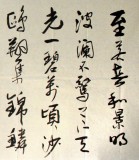 至若春和景明
波澜不驚上下天
光一碧萬頃沙
鷗翔集錦鱗